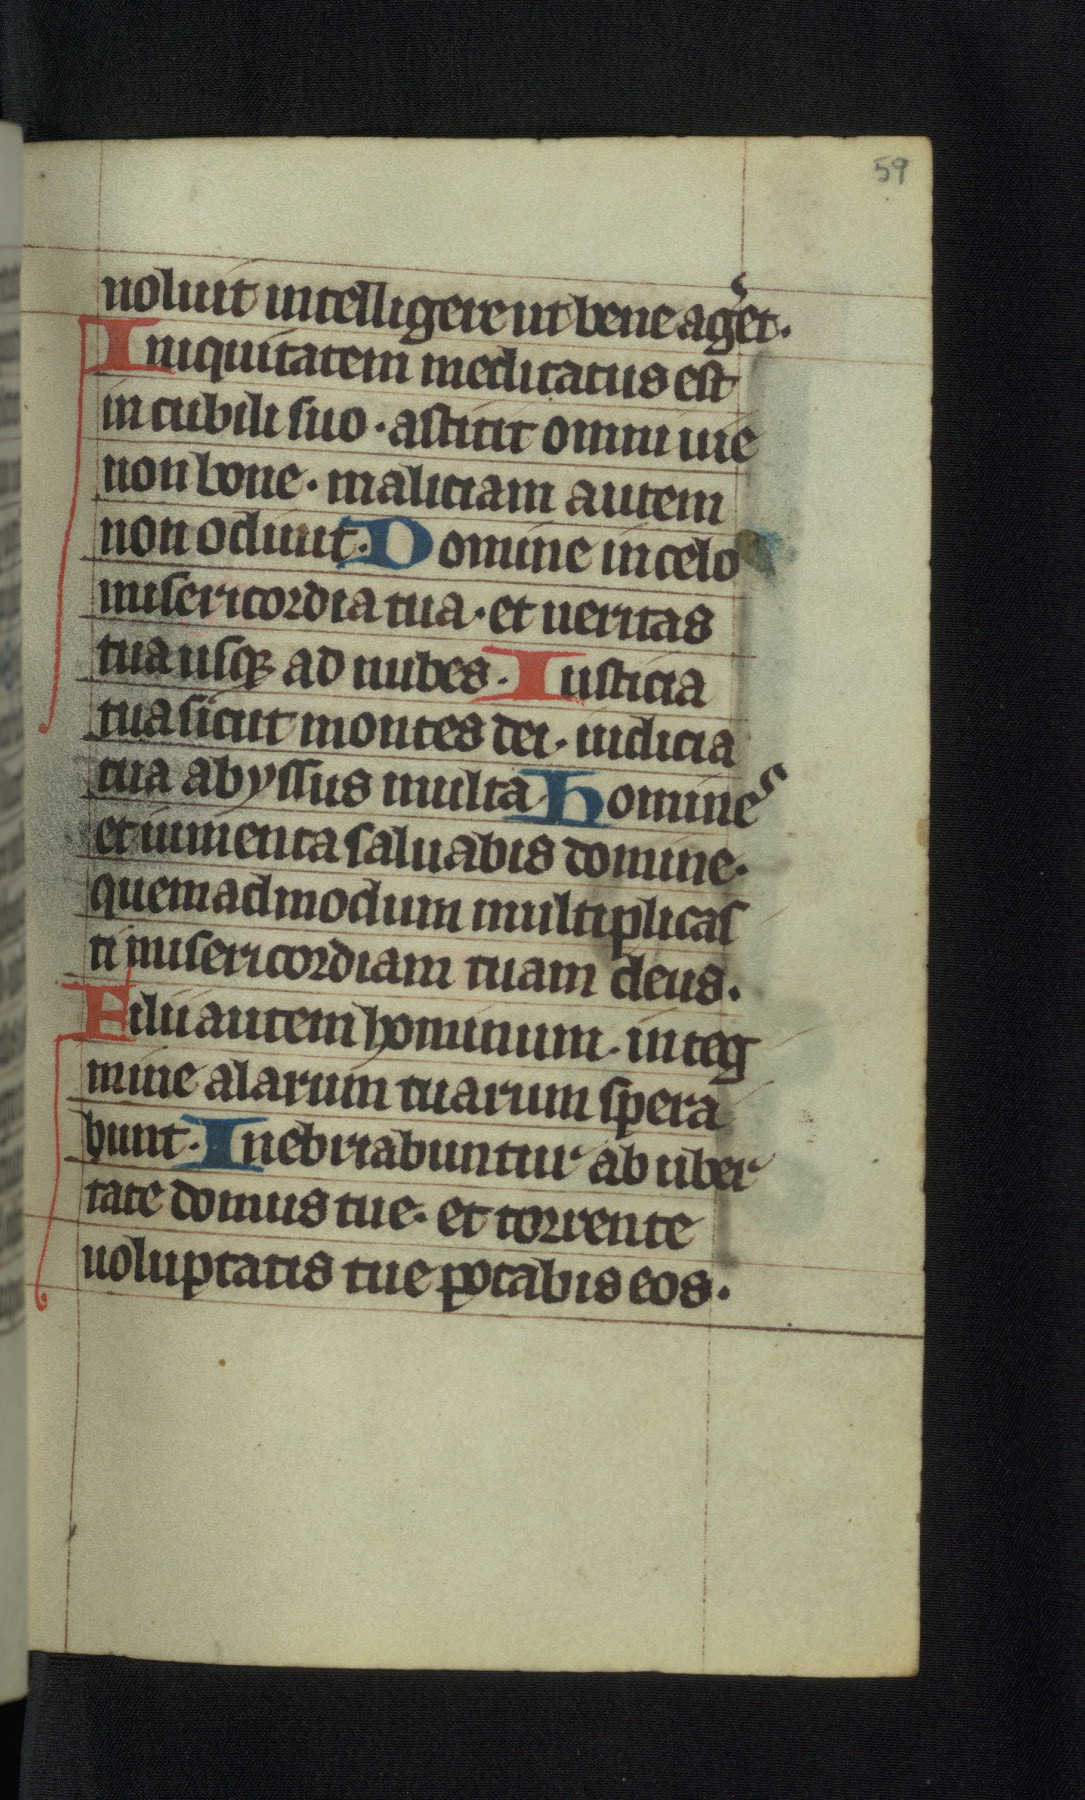 59
uoluit intelligere ut bene aget.
Iniquitatem meditatus est
in cubili suo · astitit omni uie
non bone · maliciam autem
non odiuit. Domine in celo
misericordia tua · et ueritas
tua usq; ad nubes. Iusticia
tua sicut montes dei · iudicia
tua abyssus multa. Homines
et iumenta saluabis domine.
quemadmodum multiplicas
ti misericordiam tuam deus.
Filii autem hominum · in teg
mine alarum tuarum spera
bunt. Inebriabuntur ab uber
tate domus tue · et torrente
uoluptatis tue potabis eos.